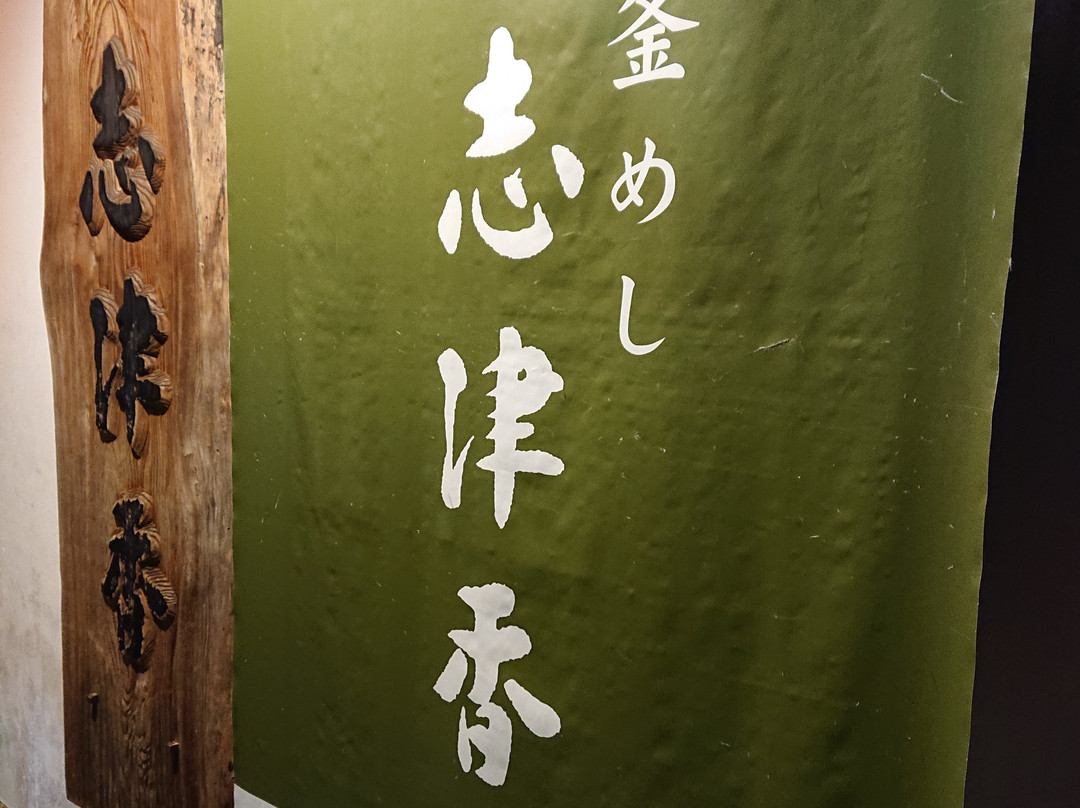 釜めし
志津香
志津香